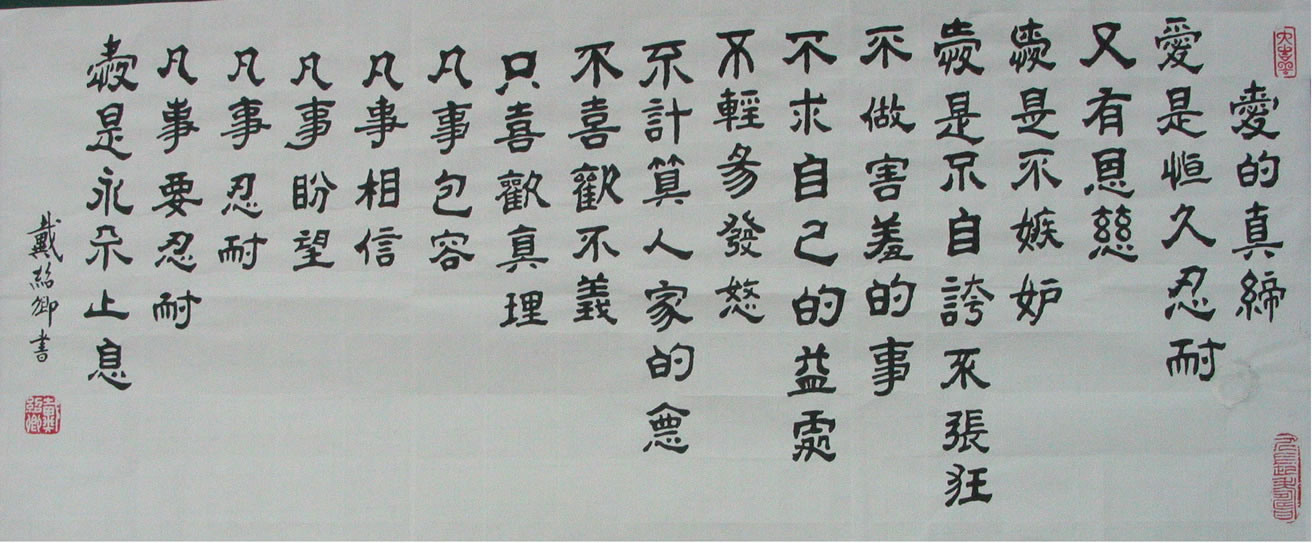 愛的真締
愛是恒久忍耐
又有恩慈
愛是不嫉妒
愛是不自誇不張狂
不做害羞的事
不求自己的益處
不輕易發怒
不計算人家的惡
不喜歡不義
只喜歡真理
凡事包容
凡事相信
凡事盼望
凡事忍耐
凡事要忍耐
愛是永不止息
戴紹卿書